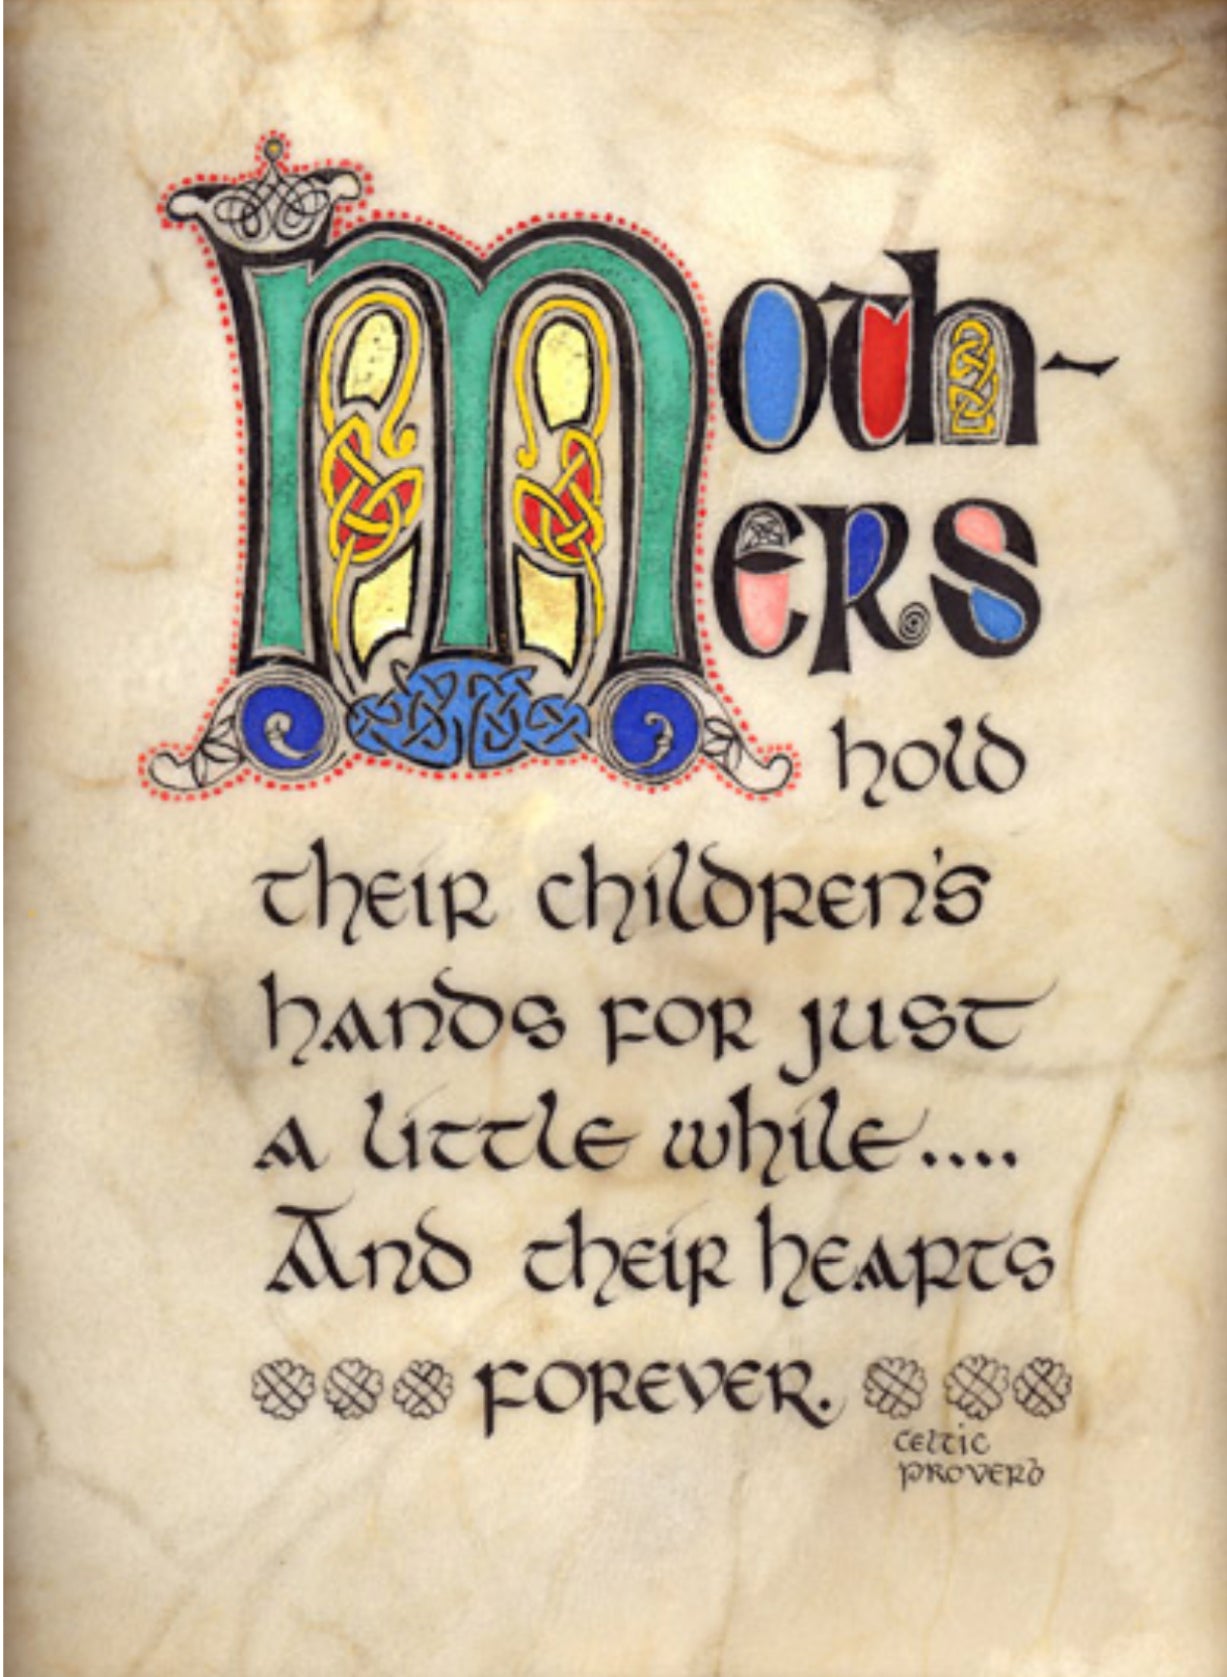 Moth-
ers
hold
their children's
hands for just
a little while....
And their hearts
forever.
celtic
proverb